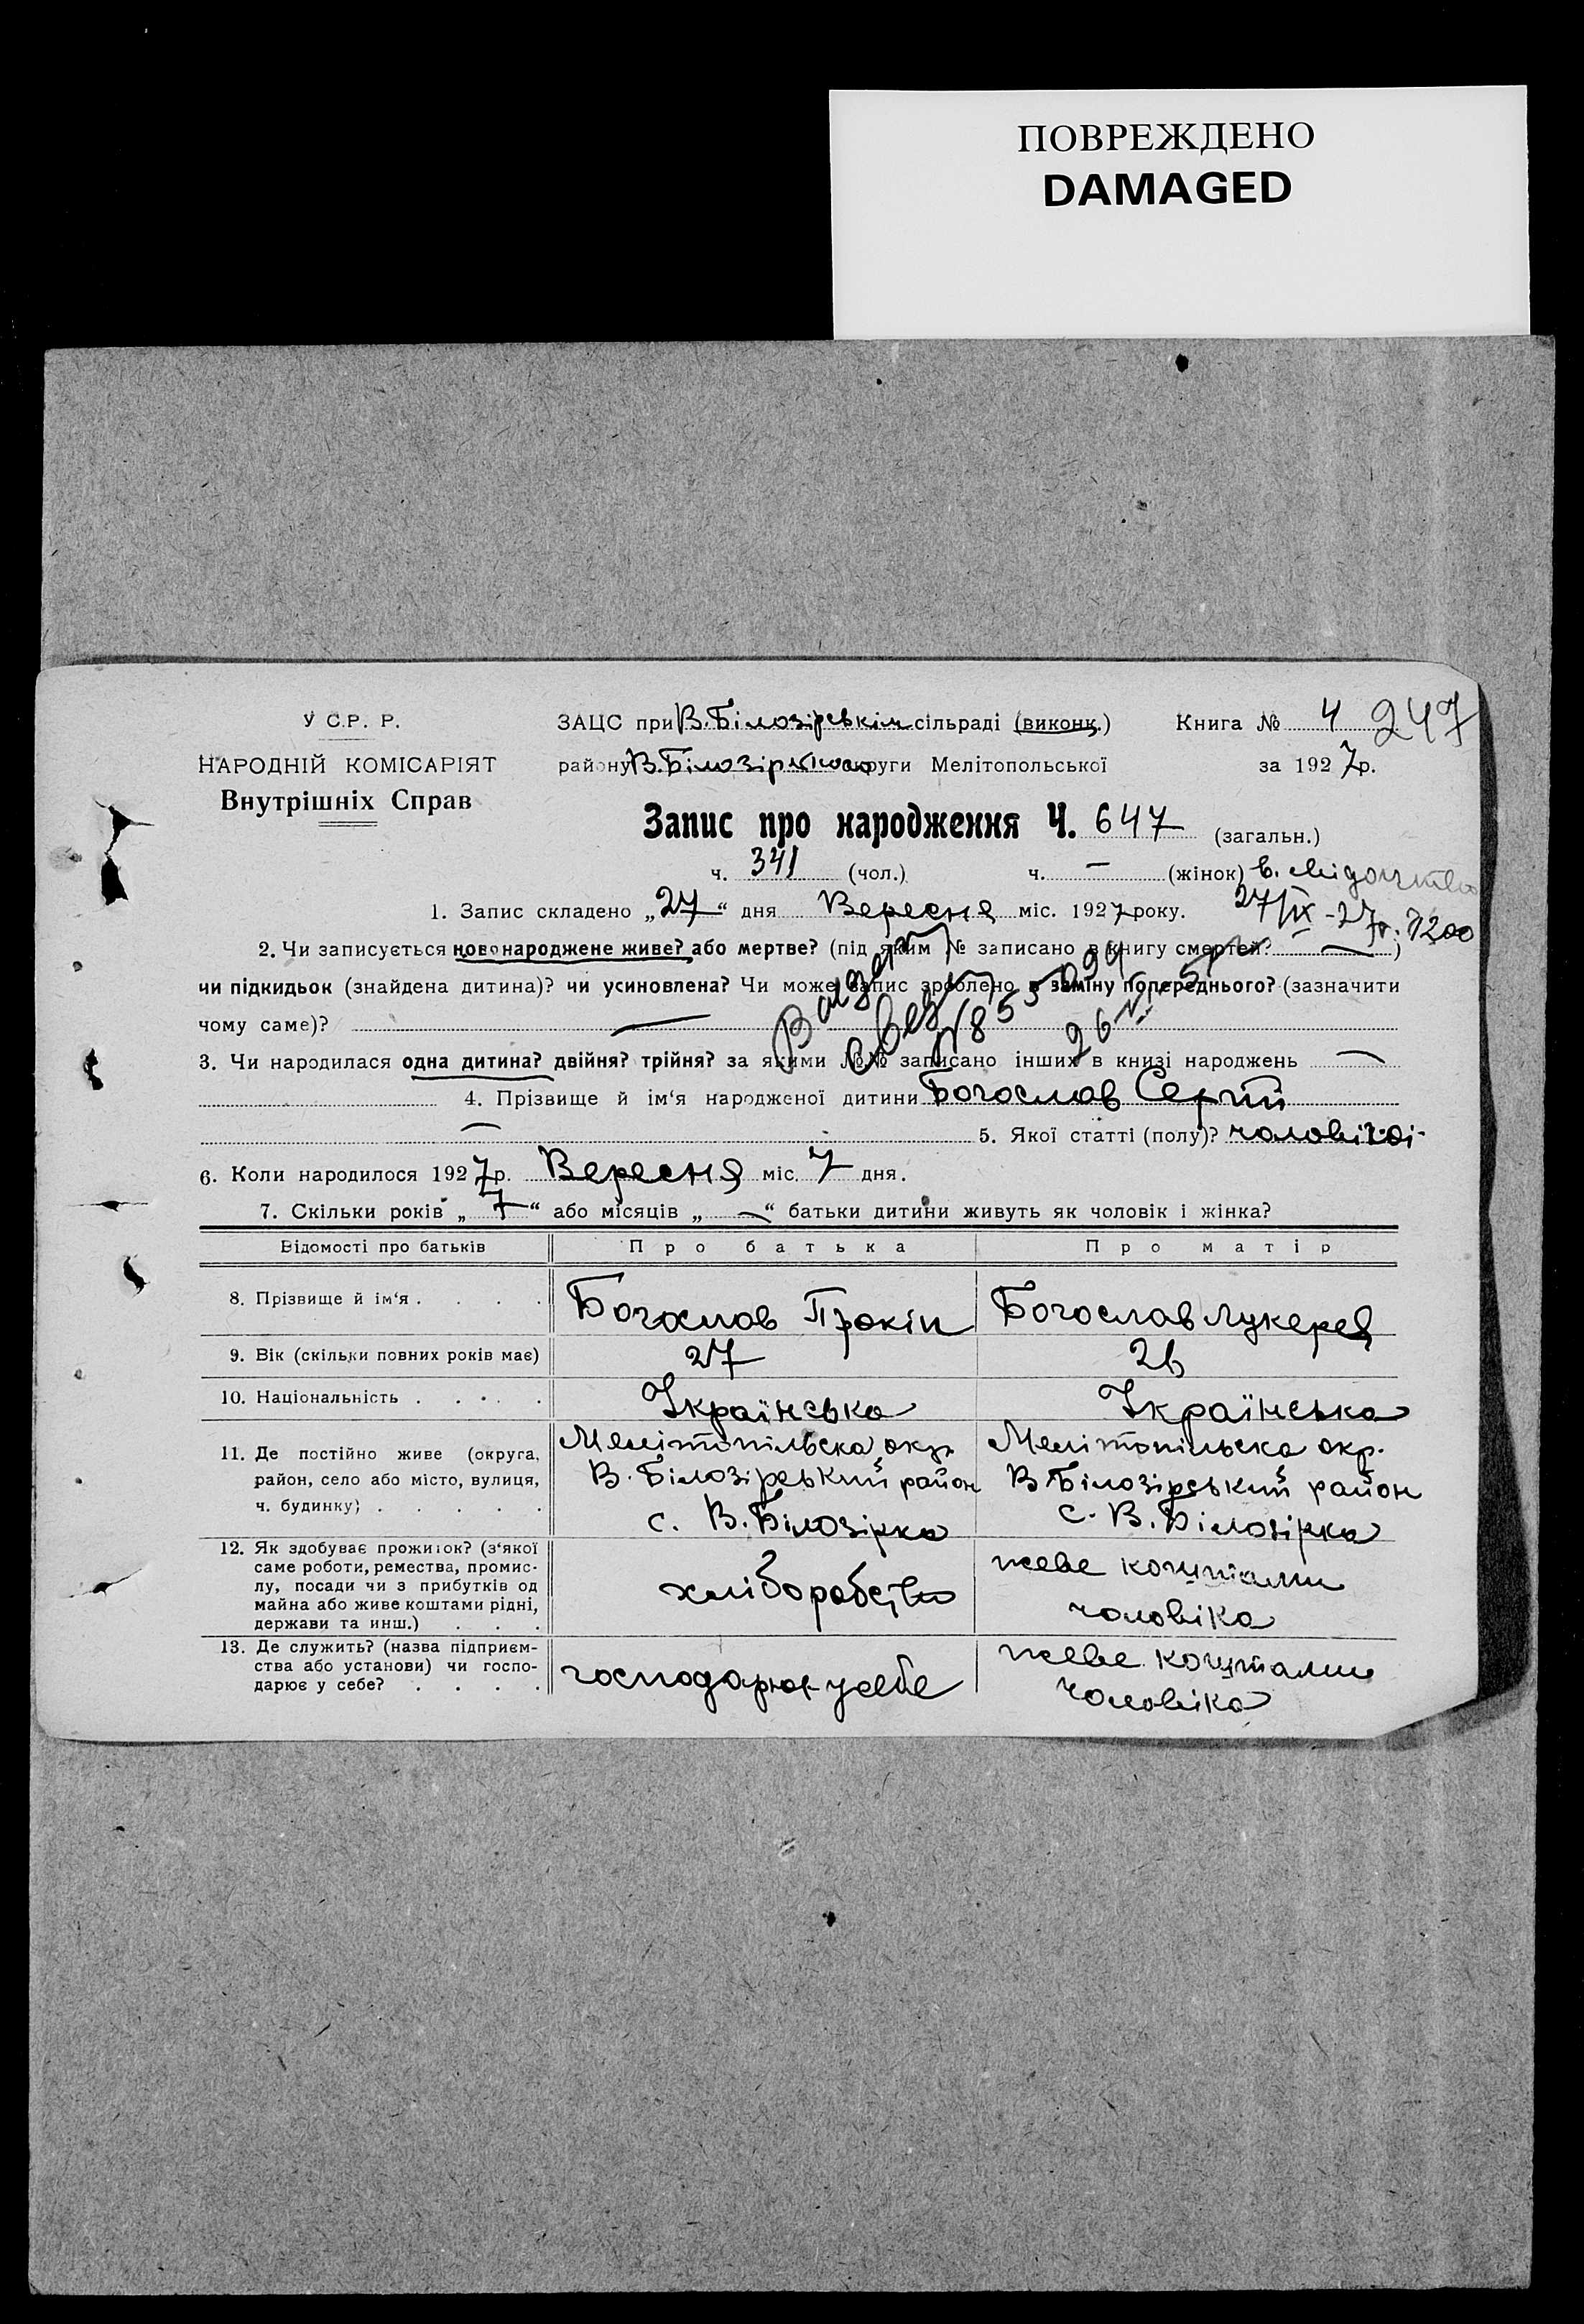 ПОВРЕЖДЕНО
DAMAGED
У С.Р. Р.
НАРОДНІЙ КОМІСАРІЯТ
Внутрішніх Справ
ЗАЦС при В. Білозірськім сільраді (виконк.)
Книга № 4 247
району В. Білозірського округи Мелітопольської
за 1927 р.
Запис про народження Ч. 647 (загальн.)
ч. 341 (чол.) ч. — (жінок) в.
1. Запис складено „27“ дня Вересня міс. 1927 року. 27/IX-27р. 7200
2. Чи записується новонароджене живе? або мертве? (під яким № записано в книгу смертей? — )
чи підкидьок (знайдена дитина)? чи усиновлена? Чи може запис зроблено в заміну попереднього? (зазначити
чому саме)? —
3. Чи народилася одна дитина? двійня? трійня? за якими №№ записано інших в книзі народжень —
4. Прізвище й ім‘я народженої дитини Богослов Сергій
— 5. Якої статті (полу)? чоловічої
6. Коли народилося 1927 р. Вересня міс. 7 дня.
7. Скільки років „7“ або місяців „—“ батьки дитини живуть як чоловік і жінка?
Відомості про батьків Про батька Про матір
8. Прізвище й ім‘я . . . . Богослов Прокіп Богослов Лукерея
9. Вік (скільки повних років має) 27 26
10. Національність . . . . Українська Українська
11. Де постійно живе (округа, район, село або місто, вулиця, ч. будинку) . . . . .
Мелітопільска окр. В. Білозірський район с. В. Білозірка
Мелітопільска окр. В Білозірський район с. В. Білозірка
12. Як здобуває прожиток? (з‘якої саме роботи, ремества, промислу, посади чи з прибутків од майна або живе коштами рідні, держави та инш.) . . .
хліборобство
живе коштами чоловіка
13. Де служить? (назва підприємства або установи) чи господарює у себе? . . . .
господарює у себе
живе коштами чоловіка